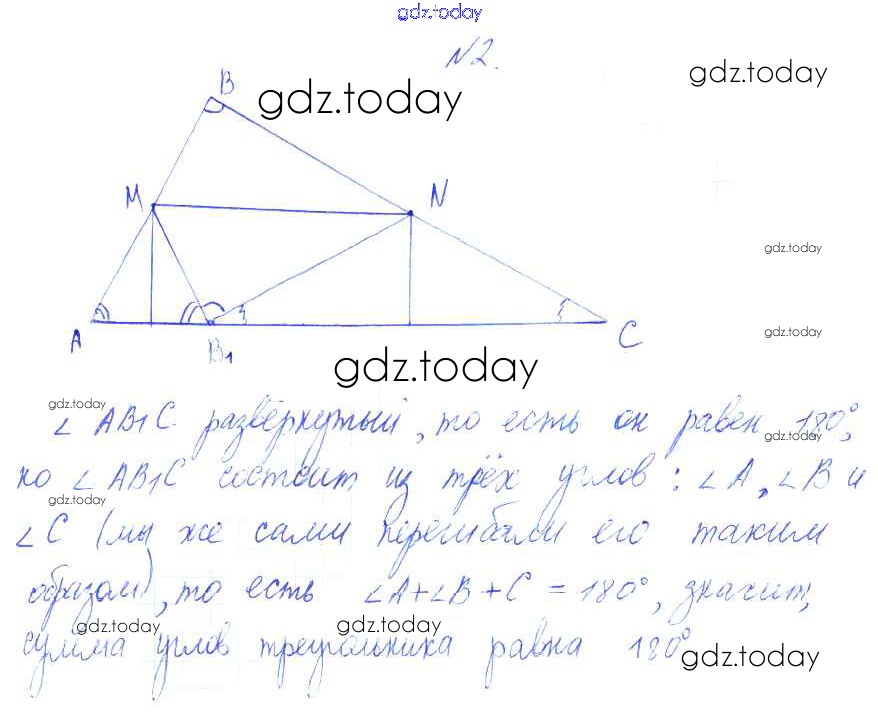 gdz.today
№2.
gdz.today
B
gdz.today
M
N
gdz.today
gdz.today
A
B₁
C
gdz.today
gdz.today
∠ AB₁C развёрнутый, то есть он равен 180°,
gdz.today
но ∠ AB₁C состоит из трёх углов: ∠A, ∠B и
gdz.today
∠C (мы же сами перегибали его таким
образом), то есть ∠A+∠B+C = 180°, значит,
gdz.today
gdz.today
сумма углов треугольника равна 180°
gdz.today